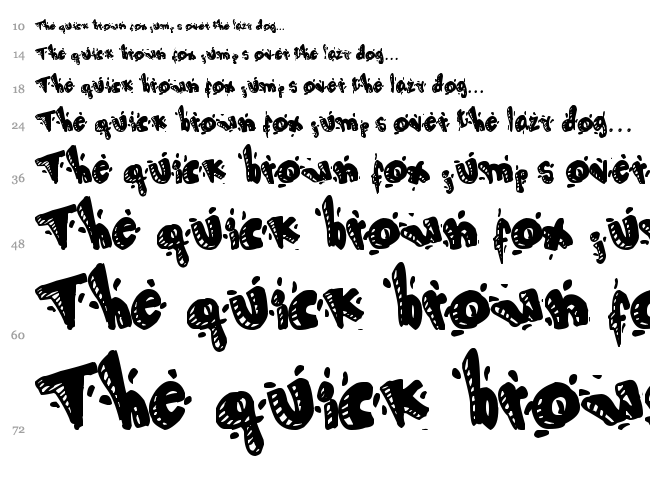 10 The quick brown fox jumps over the lazy dog...
14 The quick brown fox jumps over the lazy dog...
18 The quick brown fox jumps over the lazy dog...
24 The quick brown fox jumps over the lazy dog...
36 The quick brown fox jumps over
48 The quick brown fox ju
60 The quick brown fo
72 The quick brow